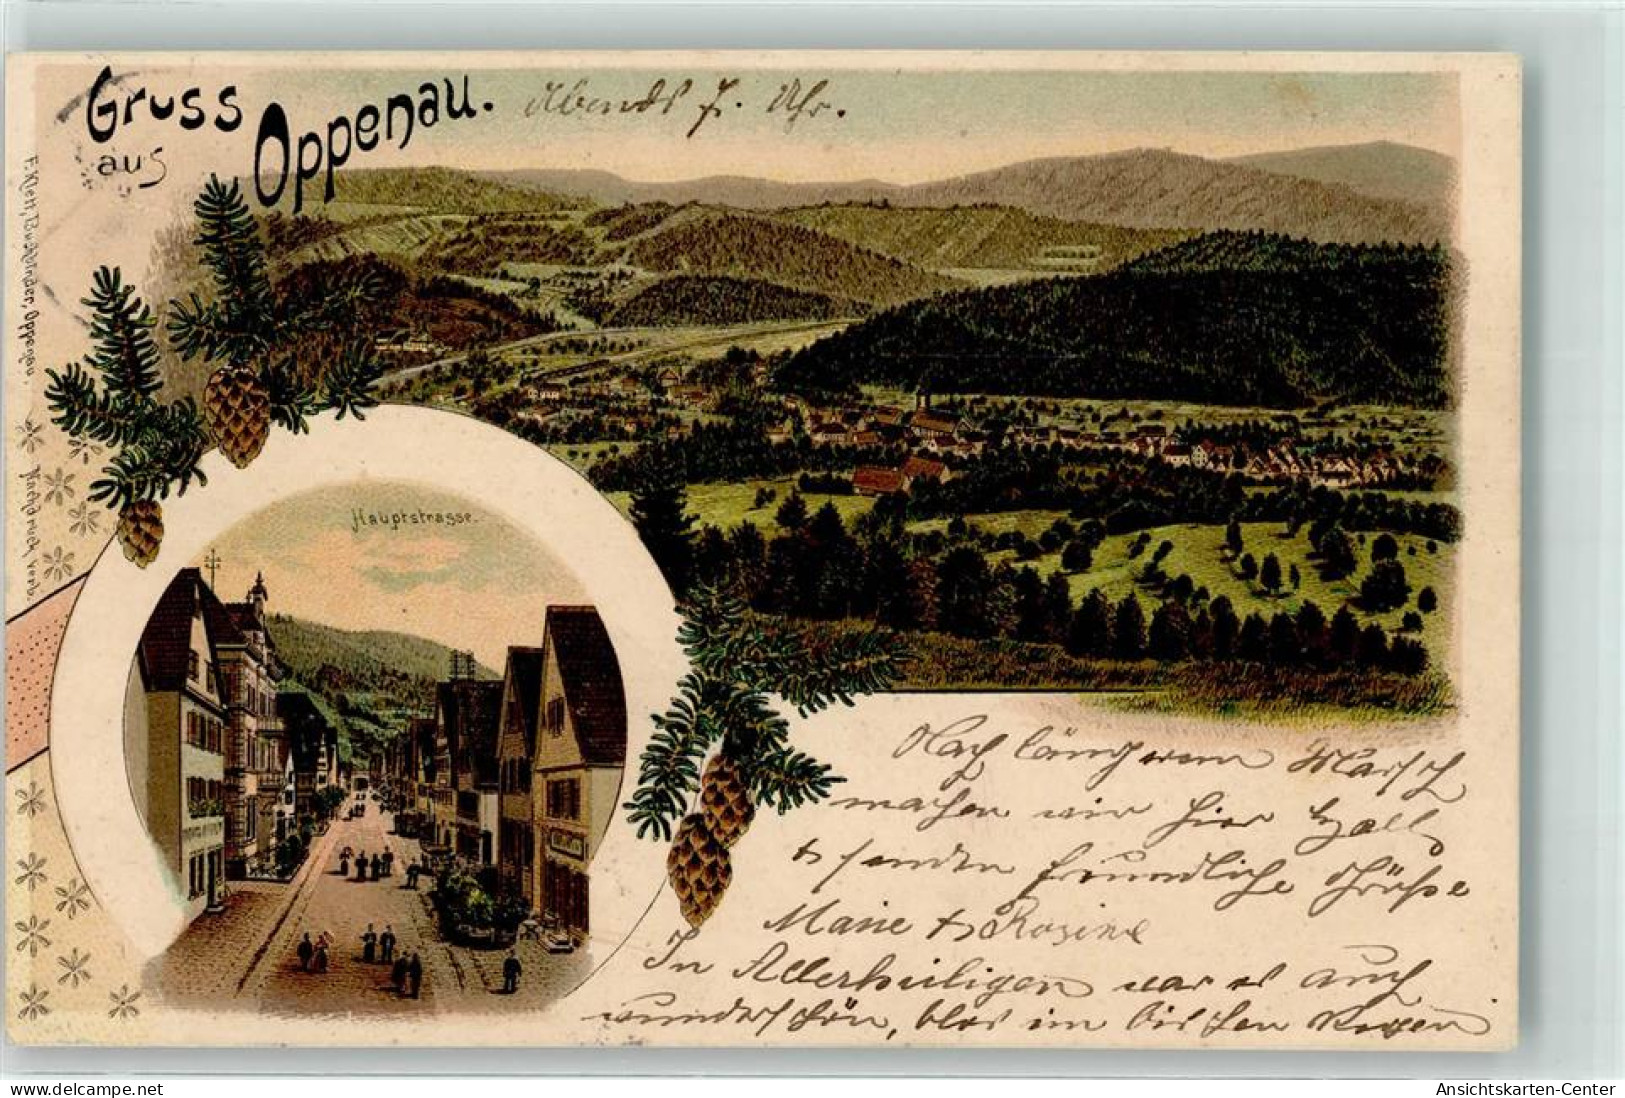 Gruss
aus
Oppenau.
Abends 7. Uhr.
F. Klett, Buchbinder, Oppenau.
Nachdruck verb.
Hauptstrasse.
Nach längerem Marsch
machen wir hier Halt
& senden freundliche Grüße
Marie & Rosine
In Allerheiligen war es auch
wunderschön, blos im bischen Regen
delcampe.net
Ansichtskarten-Center